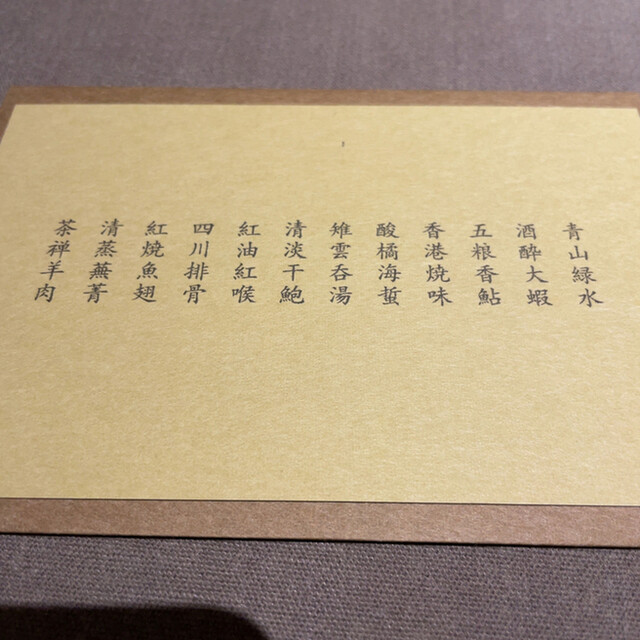 青山緑水
酒醉大蝦
五粮香鮎
香港焼味
酸橘海蜇
雉雲呑湯
清淡干鮑
紅油紅喉
四川排骨
紅焼魚翅
清蒸蕪菁
茶禅羊肉